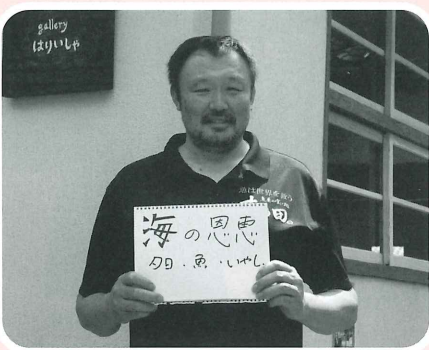 gallery
はりいしゃ
魚は世界を救う
海の恩恵
夕日・魚・いやし